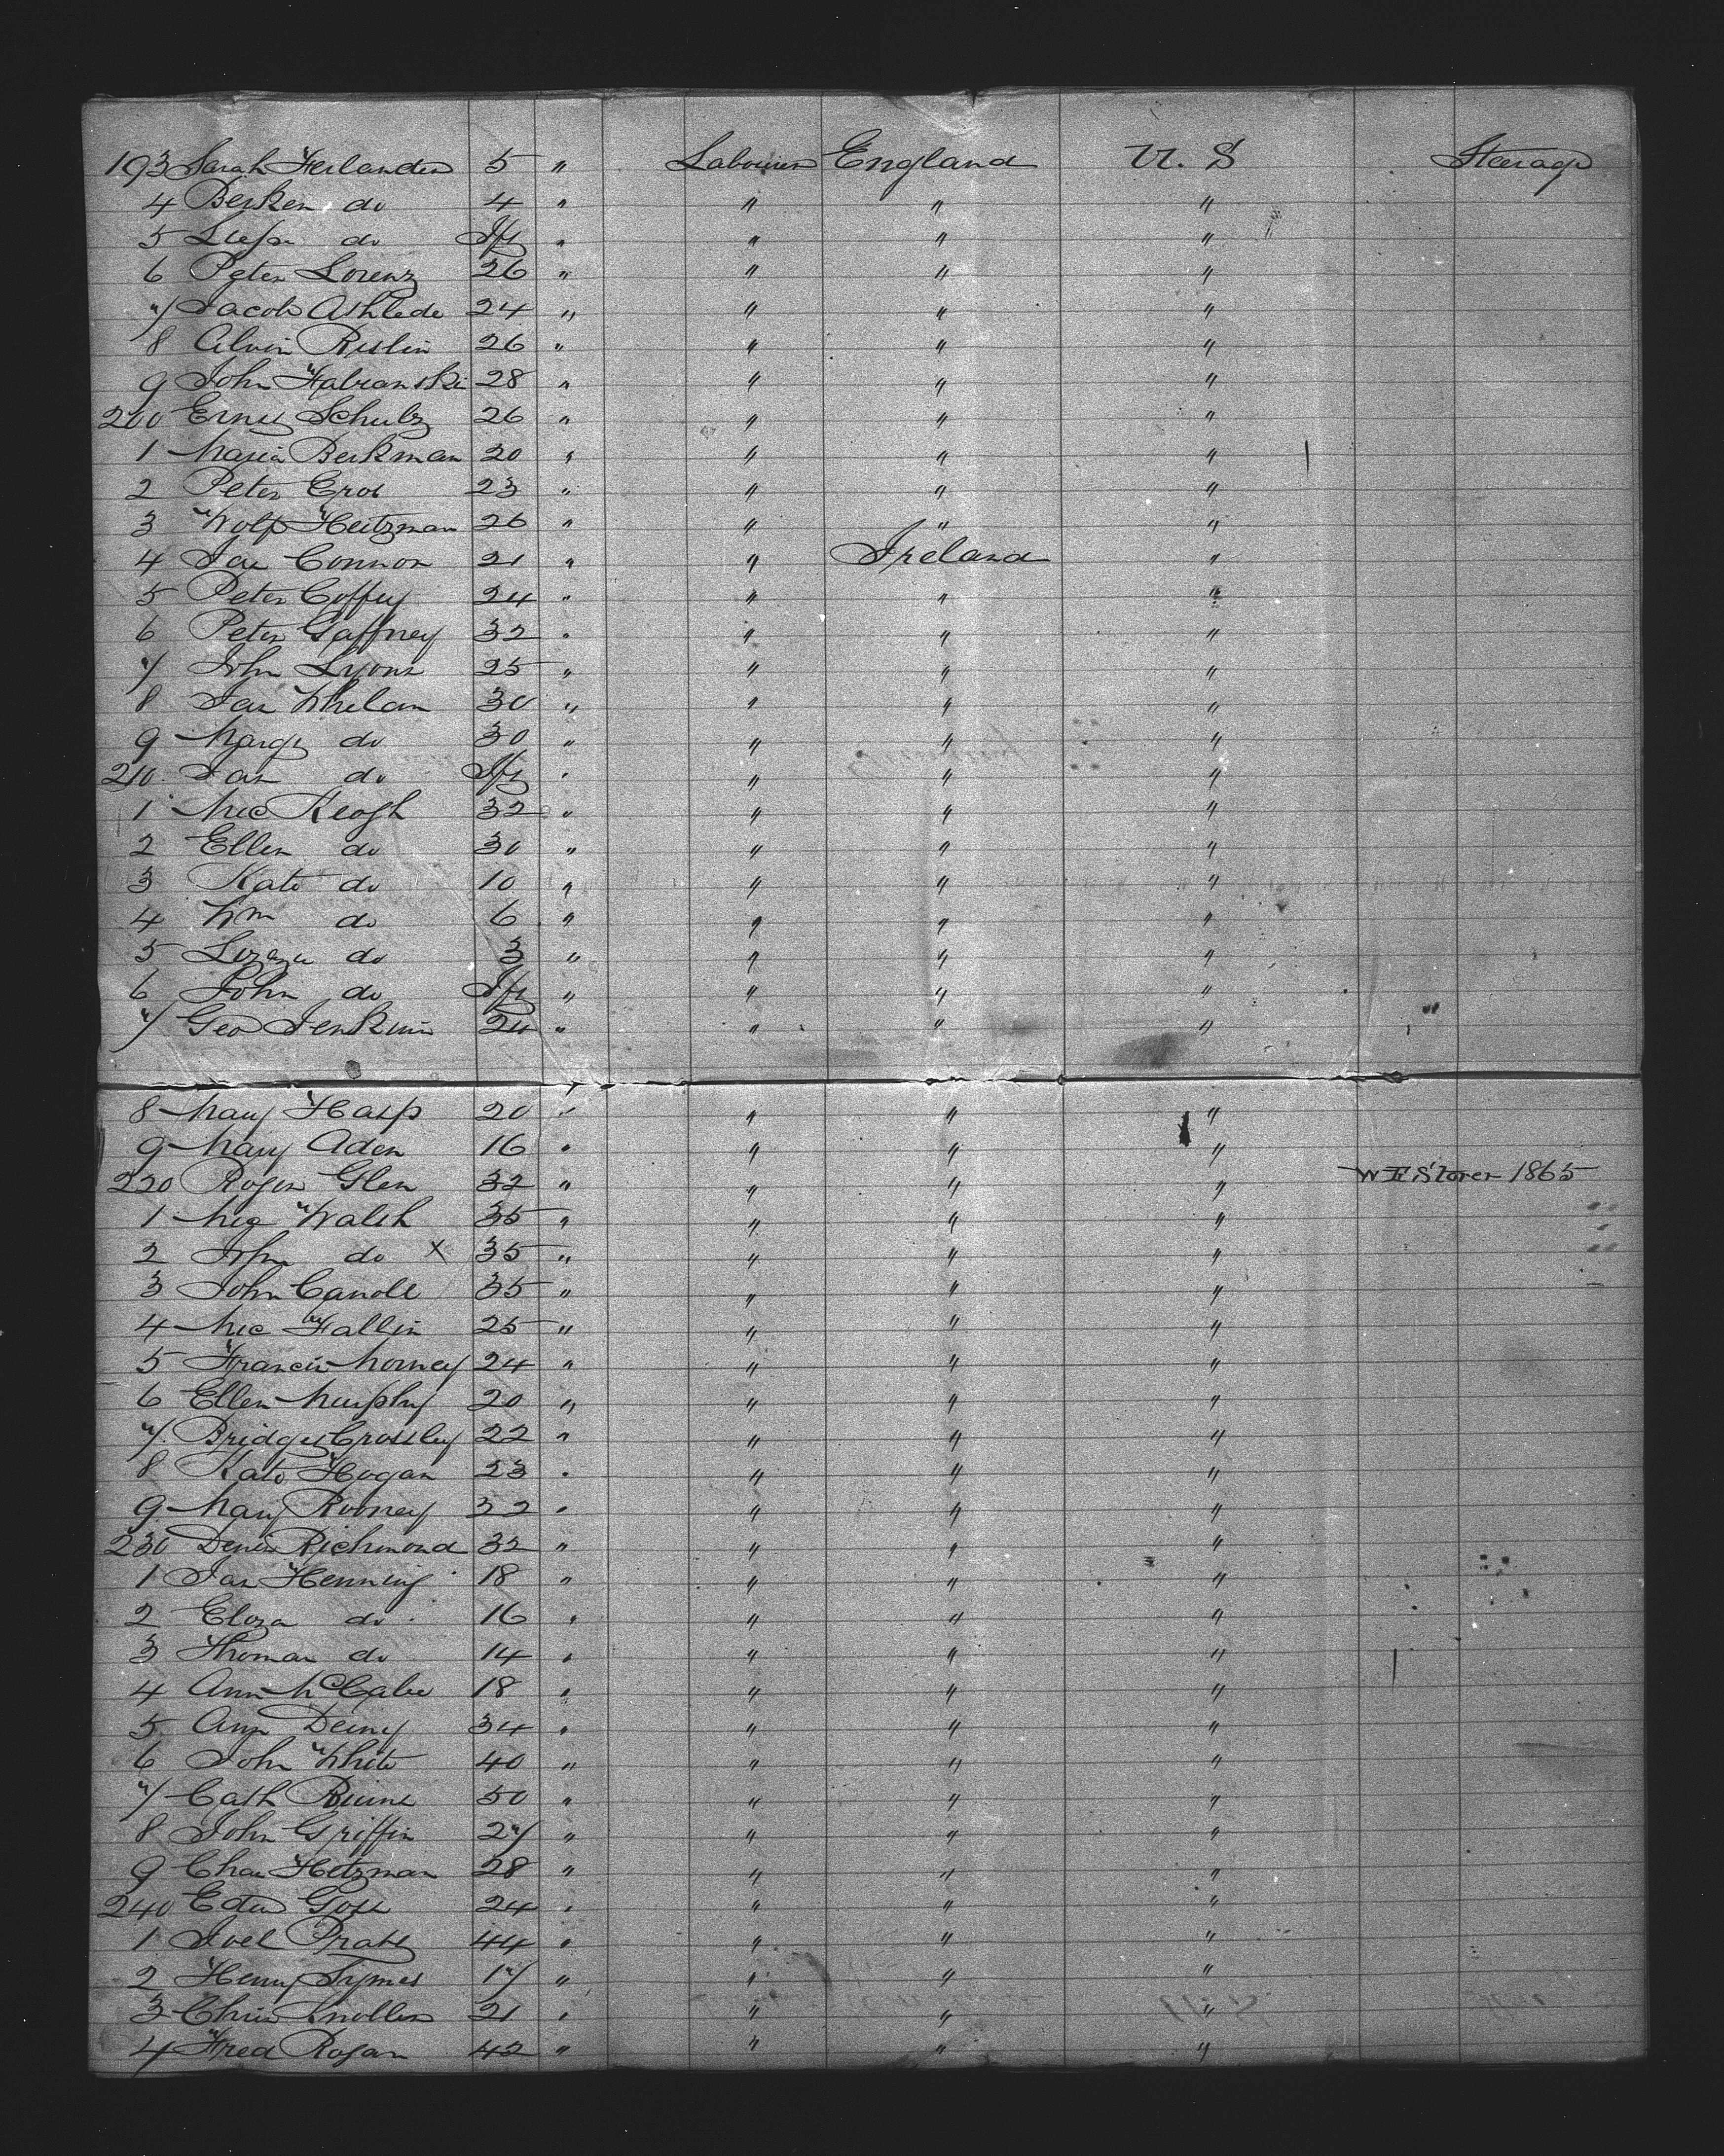 193 Sarah Herlander 5 " Labourer England U. S Steerage
4 Berken do 4 " " " "
5 do Ift " " " "
6 Peter Lorenz 26 " " " "
7 Jacob Athlede 24 " " " "
8 Alvin Rislin 26 " " " "
9 John Fabianski 28 " " " "
200 Ernst Schulz 26 " " " "
1 Maria Berkman 20 " " " "
2 Peter Gros 23 " " " "
3 Wolf Heitzman 26 " " " "
4 Jas Connor 21 " " Ireland "
5 Peter Coffey 24 " " " "
6 Peter Gaffney 32 " " " "
7 John Lyons 25 " " " "
8 Jas Whelan 30 " " " "
9 Margt do 30 " " " "
210 Jas do Ift " " " "
1 Mic Keogh 32 " " " "
2 Ellen do 30 " " " "
3 Kate do 10 " " " "
4 Wm do 6 " " " "
5 do 3 " " " "
6 John do Ift " " " "
7 Geo Jenkins 24 " " " "
8 Mary Harp 20 " " " "
9 Mary Aden 16 " " " "
220 Roger Glen 32 " " " " W F Storer 1865
1 Mic Walsh 35 " " " "
2 John do x 35 " " " "
3 John Carroll 35 " " " "
4 Mic Fallin 25 " " " "
5 Francis Morney 24 " " " "
6 Ellen Murphy 20 " " " "
7 Bridget Crossley 22 " " " "
8 Kate Hogan 23 " " " "
9 Mary Rooney 32 " " " "
230 Denis Richmond 32 " " " "
1 Jas Henning 18 " " " "
2 Eliza do 16 " " " "
3 Thomas do 14 " " " "
4 Ann McCabe 18 " " " "
5 Ann Deiny 34 " " " "
6 John White 40 " " " "
7 Cath 50 " " " "
8 John Griffin 27 " " " "
9 Chas Hetzman 28 " " " "
240 Edw Goss 24 " " " "
1 Joel Pratt 44 " " " "
2 Henry Symes 17 " " " "
3 Chris Knollen 21 " " " "
4 Fred Rogan 42 " " " "